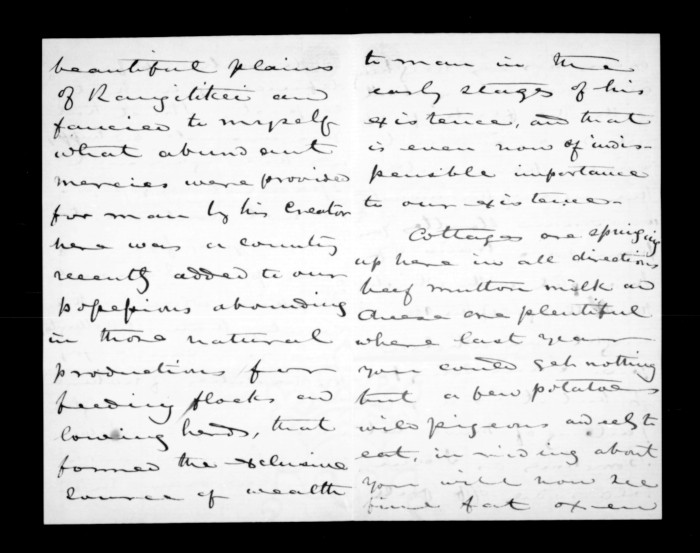 beautiful plains
of Rangitikei and
fancied to myself
what abundant
mercies were provided
for man by his Creator
here was a country
recently added to our
possessions abounding
in those natural
productions for
feeding flocks and
lowing herds, that
formed the exclusive
source of wealth
to man in the
early stages of his
existence, and that
is even now of indis-
pensible importance
to our existence.
Cottages are springing
up here in all directions
beef mutton milk and
cheese are plentiful
where last year
you could get nothing
but a few potatoes
wild pigeons and eels to
eat, in riding about
you will now see
fine fat oxen